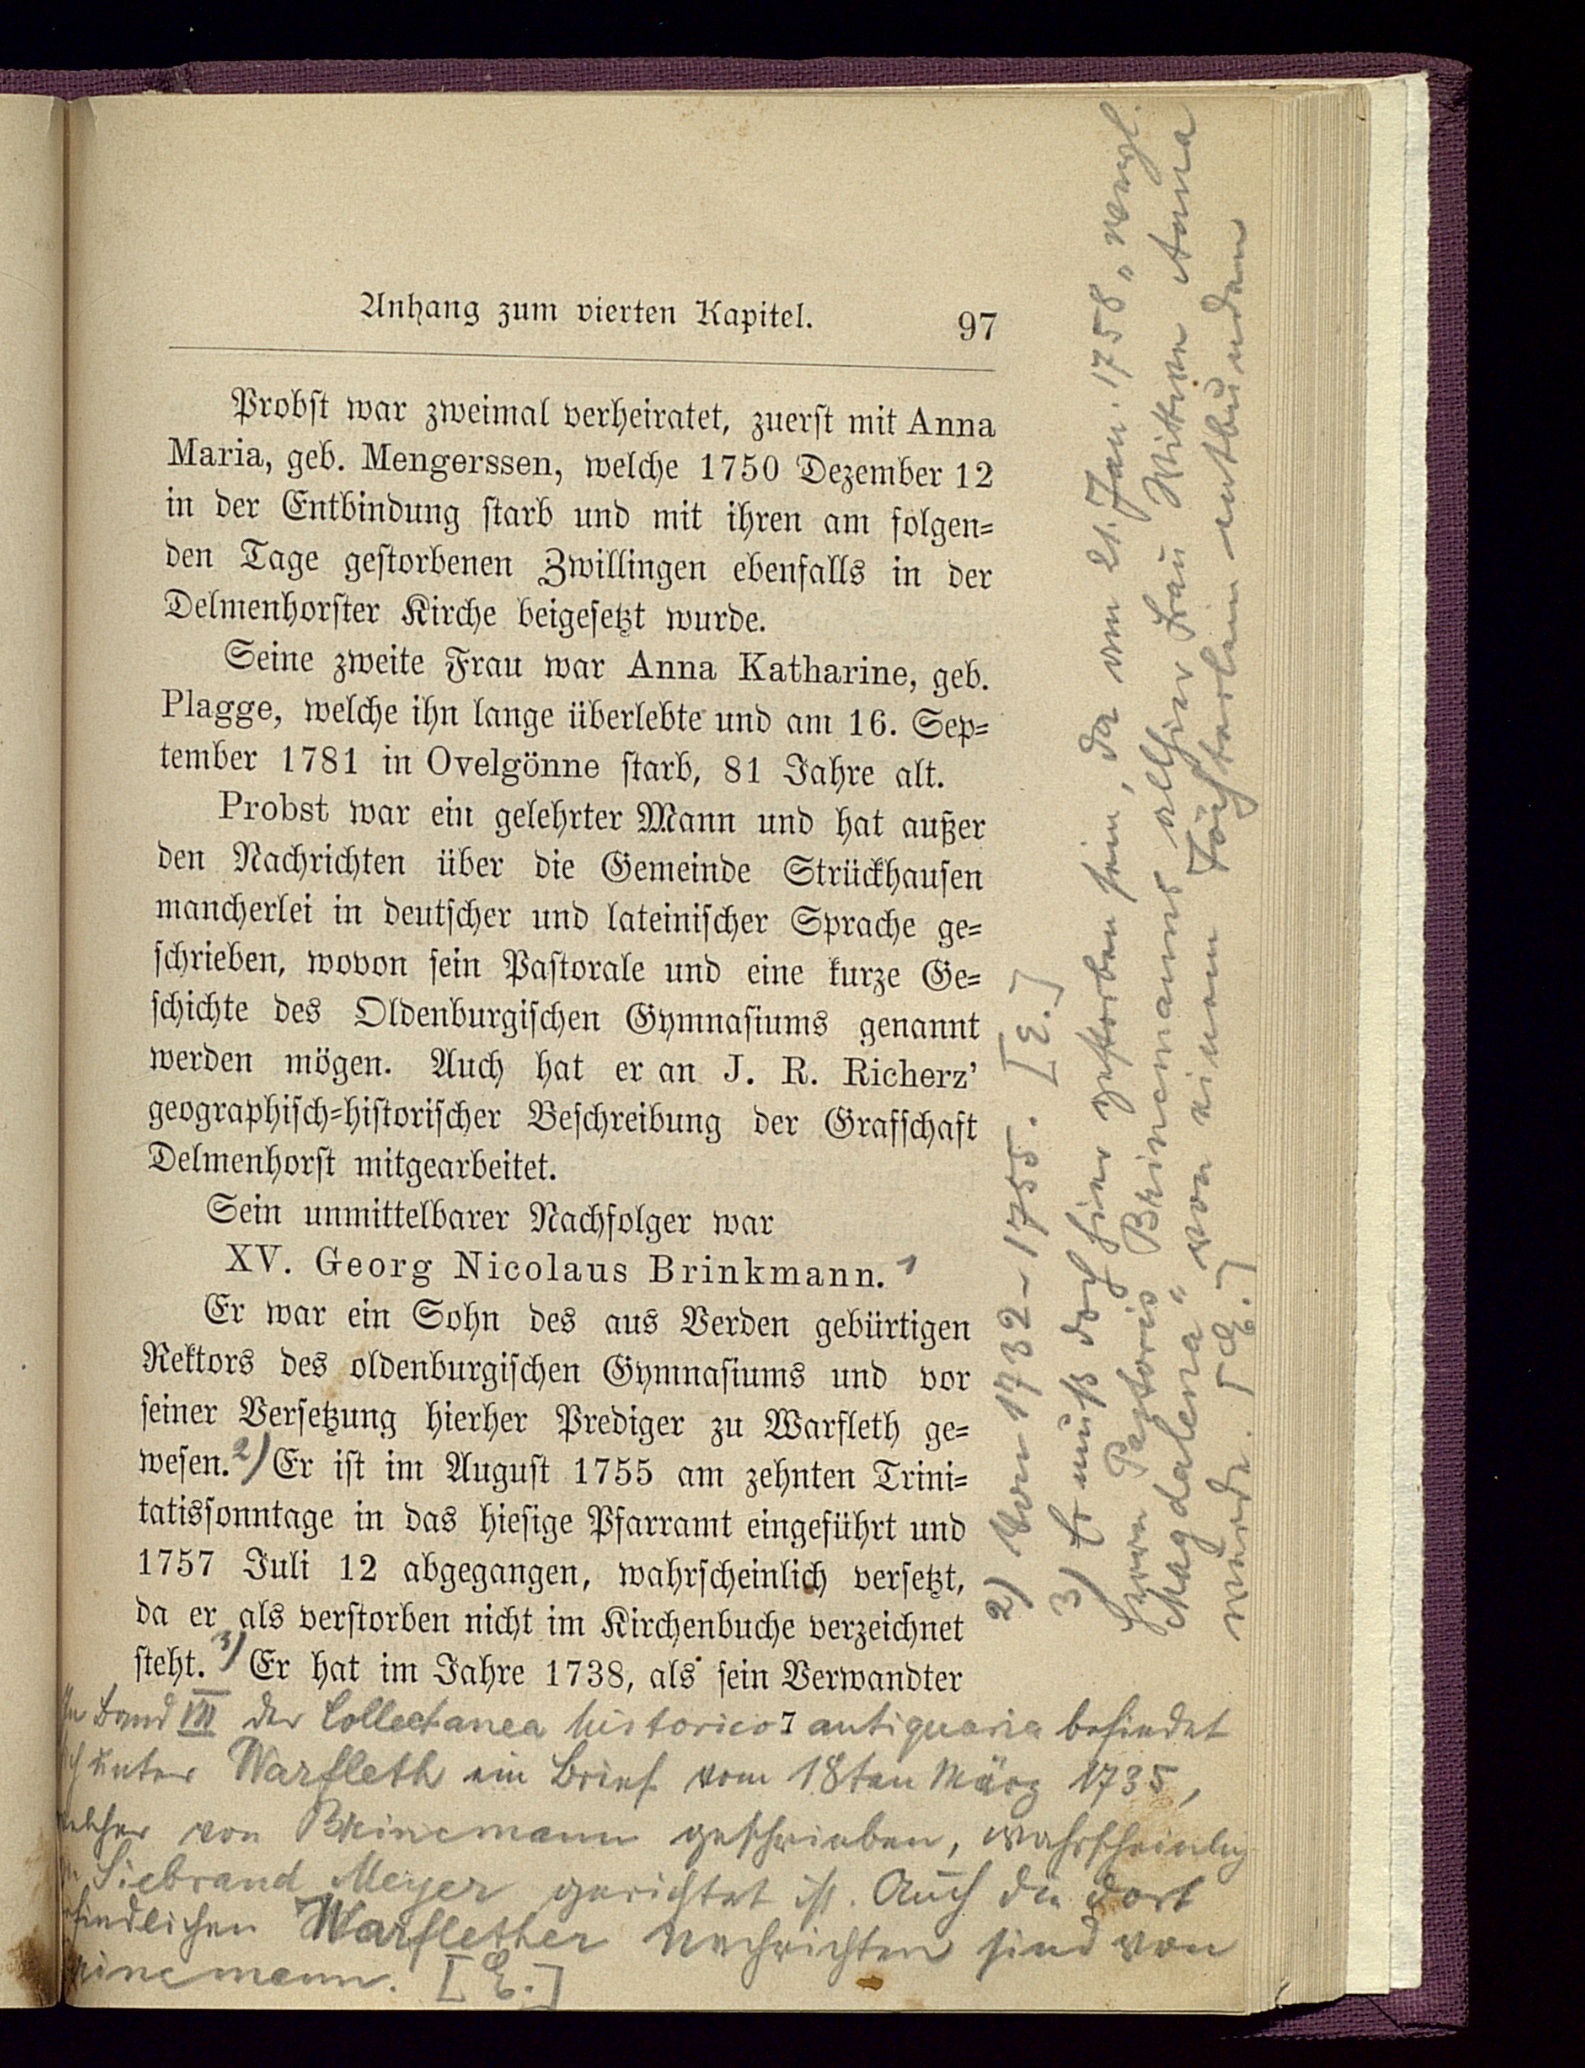 Anhang zum vierten Kapitel.
97
Probst war zweimal verheiratet, zuerst mit Anna
Maria, geb. Mengerssen, welche 1750 Dezember 12
in der Entbindung starb und mit ihren am folgen=
den Tage gestorbenen Zwillingen ebenfalls in der
Delmenhorster Kirche beigesetzt wurde.
Seine zweite Frau war Anna Katharine, geb.
Plagge, welche ihn lange überlebte und am 16. Sep=
tember 1781 in Ovelgönne starb, 81 Jahre alt.
Probst war ein gelehrter Mann und hat außer
den Nachrichten über die Gemeinde Strückhausen
mancherlei in deutscher und lateinischer Sprache ge=
schrieben, wovon sein Pastorale und eine kurze Ge=
schichte des Oldenburgischen Gymnasiums genannt
werden mögen. Auch hat er an J. R. Richerz'
geographisch=historischer Beschreibung der Grafschaft
Delmenhorst mitgearbeitet.
Sein unmittelbarer Nachfolger war
XV. Georg Nicolaus Brinkmann. 1
Er war ein Sohn des aus Verden gebürtigen
Rektors des oldenburgischen Gymnasiums und vor
seiner Versetzung hierher Prediger zu Warfleth ge=
wesen. 2) Er ist im August 1755 am zehnten Trini=
tatissonntage in das hiesige Pfarramt eingeführt und
1757 Juli 12 abgegangen, wahrscheinlich versetzt,
da er als verstorben nicht im Kirchenbuche verzeichnet
steht. 3) Er hat im Jahre 1738, als sein Verwandter
Band VII der Collectanea historico antiquaria befindet
unter Warfleth ein Brief vom 18ten März 1735,
welcher von Brincmann geschrieben, wahrscheinlich
Siebrand Meyer gerichtet ist. Auch die dort
befindlichen Warflether Nachrichten sind von
Brincmann. [E.]
2) Von 1732-1755. [E.]
3) Er muß doch hier gestorben sein, da am 21. Jan. 1758 „weyl.
Herrn Pastoris Brincmanns allhier Frau Witwe Anna
Magdalena" von einem Töchterlein entbunden
wurde. [E.]